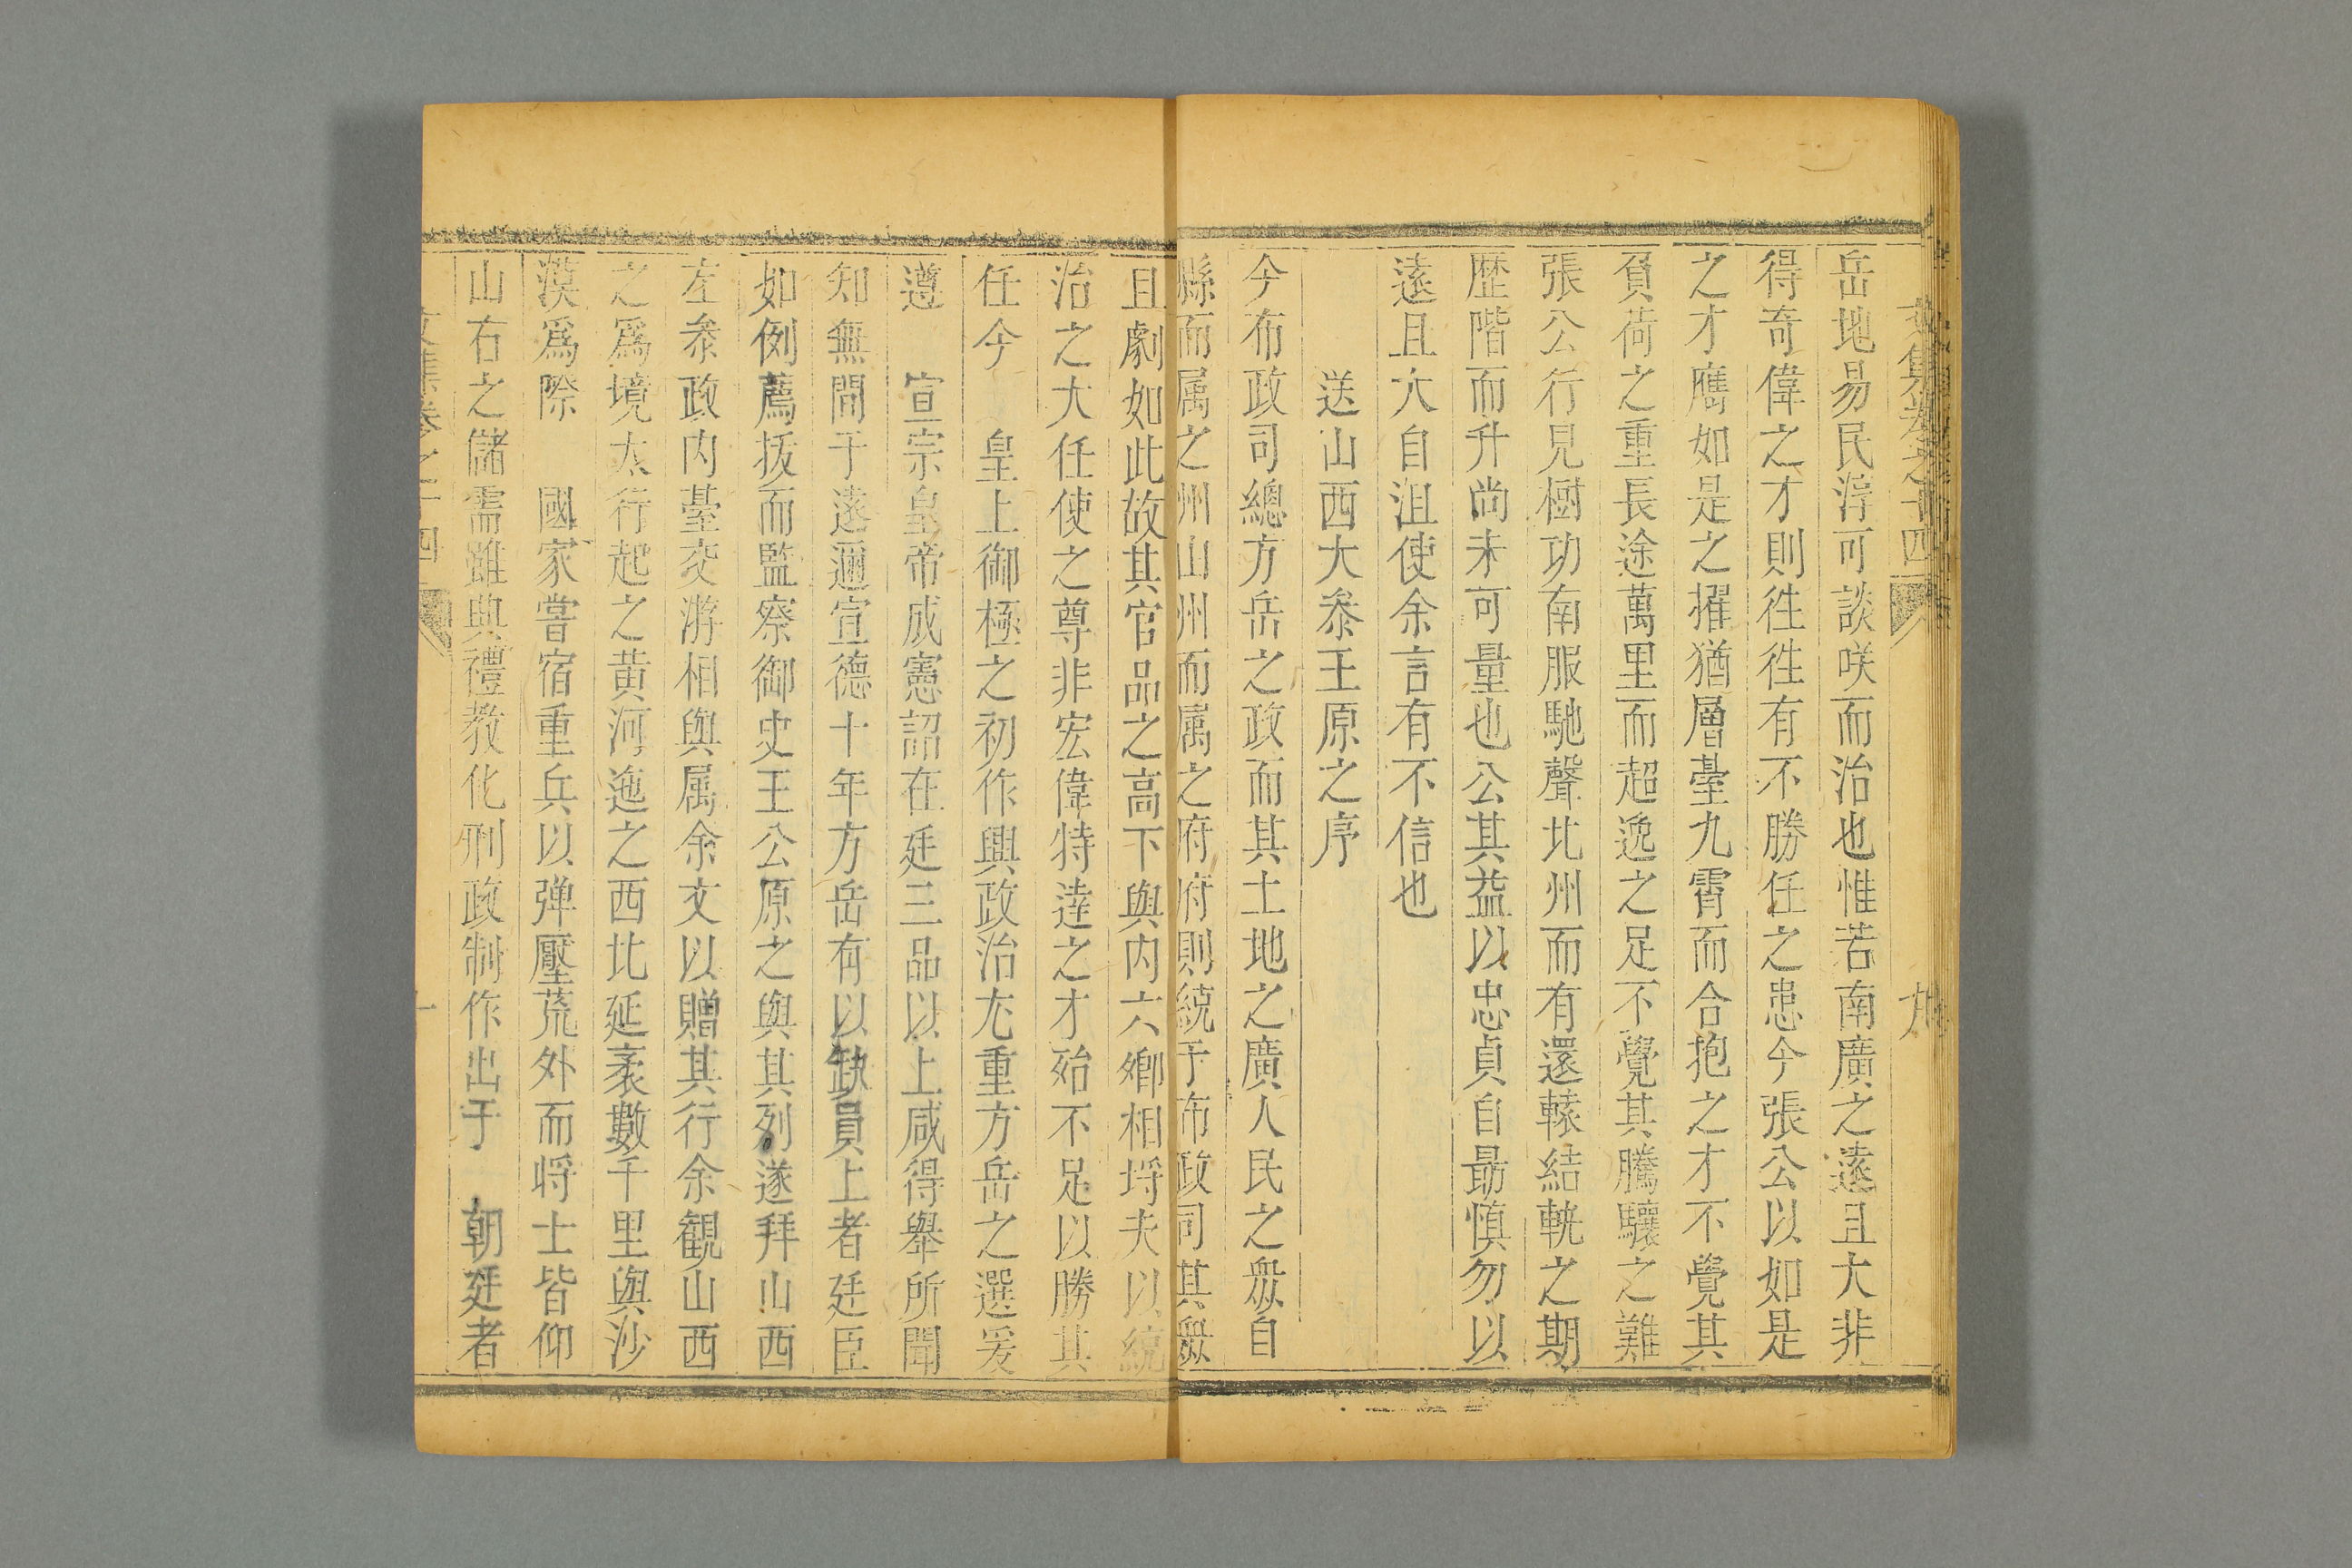 岳地易民淳可談咲而治也惟若南廣之遠且大非
得奇偉之才則徃徃有不勝任之患今張公以如是
之才膺如是之擢猶層臺九霄而合抱之才不覺其
負荷之重長途萬里而超逸之足不覺其騰驤之難
張公行見樹功南服馳聲北州而有還轅結軼之期
歷階而升尚未可量也公其益以忠貞自最慎勿以
遠且大自沮使余言有不信也
送山西大叅王原之序
今布政司總方岳之政而其土地之廣人民之衆自
縣而属之州山州而属之府府則統于布政司其衆
且劇如此故其官品之高下與内六鄉相埒夫以統
治之大任使之尊非宏偉特達之才殆不足以勝其
任今 皇上御極之初作興政治尢重方岳之選爰
遵 宣宗皇帝成憲詔在廷三品以上咸得舉所聞
知無間于遠邇宣德十年方岳有以缺員上者廷臣
如例薦拔而監察御史王公原之與其列遂拜山西
左叅政内臺交游相與属余文以贈其行余観山西
之爲境太行起之黄河迤之西北延袤數千里與沙
漠爲際 國家嘗宿重兵以弹壓荒外而将士皆仰
山右之儲需雖典禮教化刑政制作出于 朝廷者
文集卷之十四